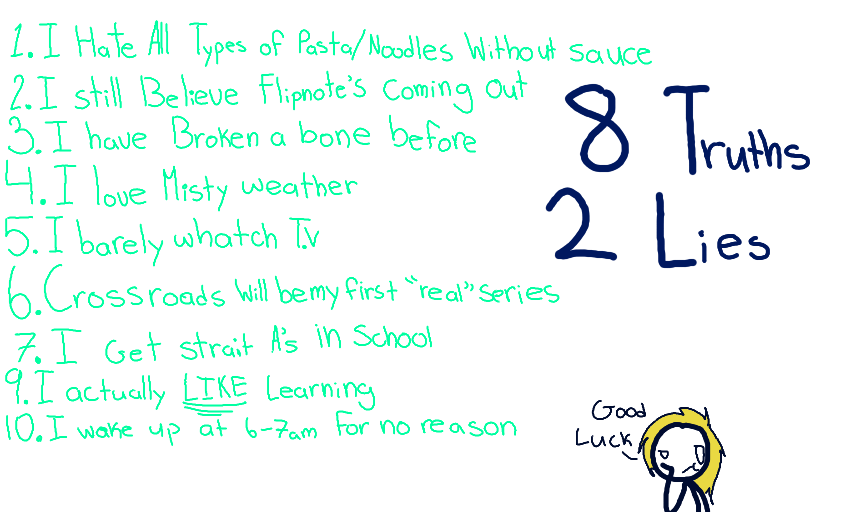 1. I Hate All Types of Pasta/Noodles Without sauce
2. I still Believe Flipnote's Coming Out
3. I have Broken a bone before
4. I love Misty weather
5. I barely whatch T.v
6. Crossroads Will be my first "real" series
7. I Get strait A's in School
9. I actually LIKE Learning
10. I wake up at 6-7am for no reason
8 Truths
2 Lies
Good
Luck